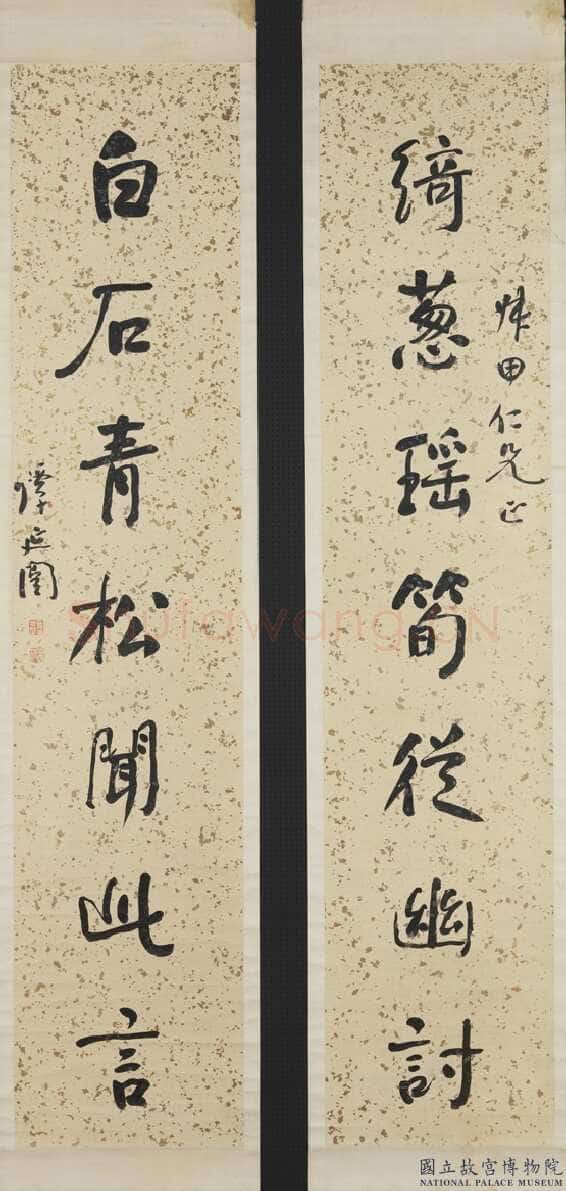 綺葱瑶筍從幽討
田仁兄正
白石青松聞此言
譚延闓
shufawang.CN
國立故宮博物院
NATIONAL PALACE MUSEUM